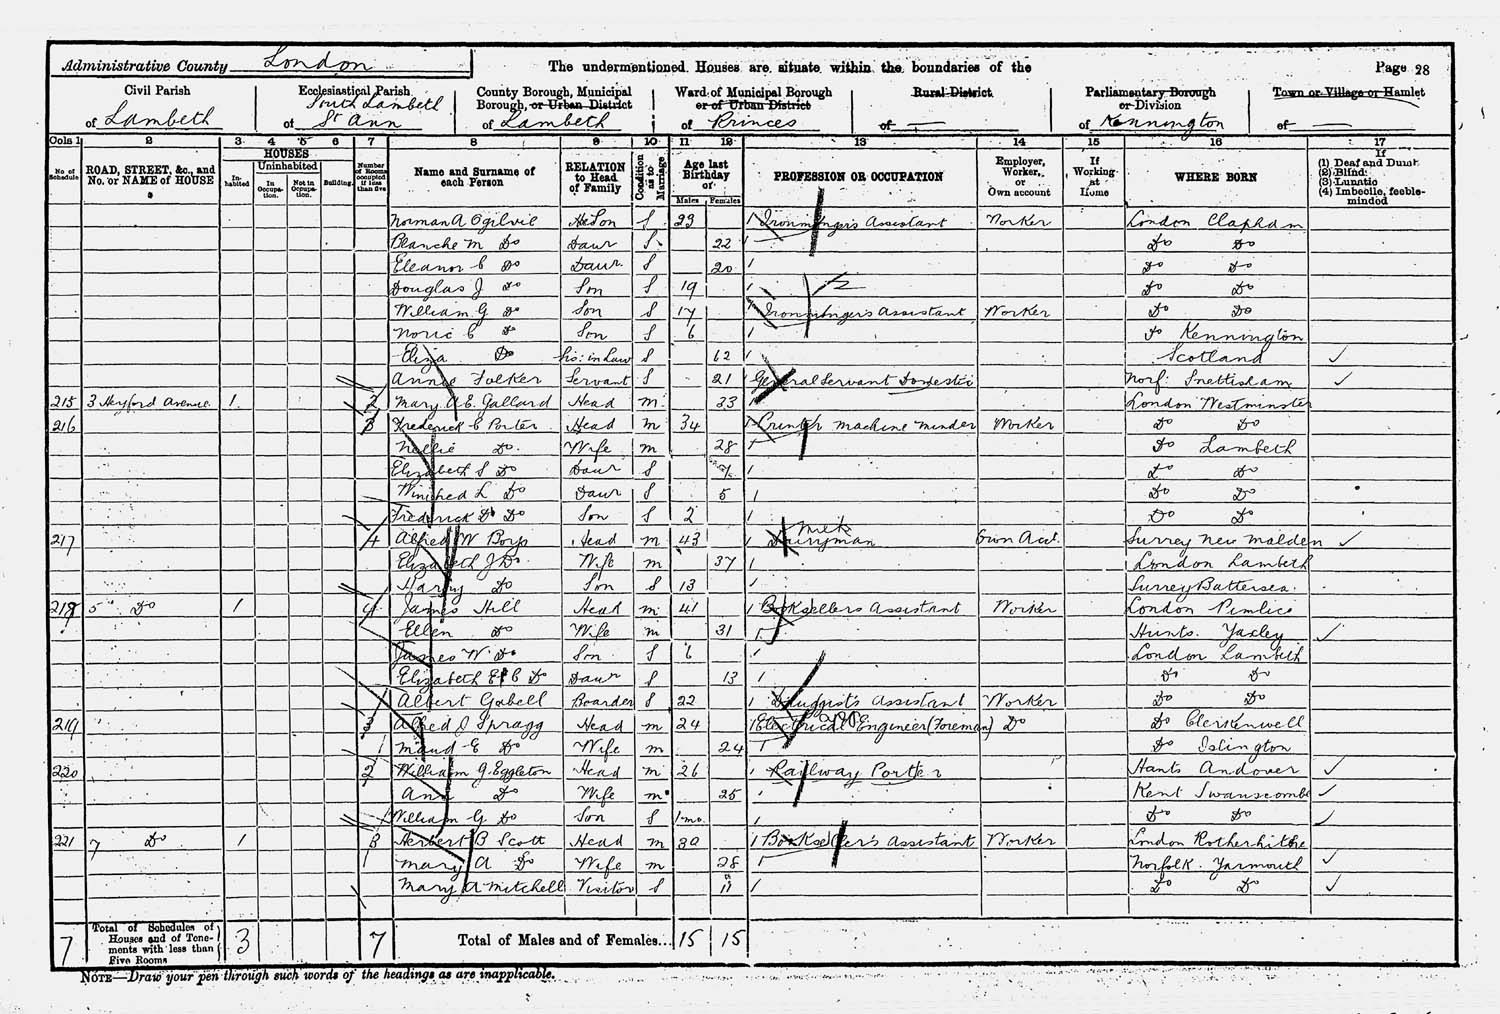 Administrative County London The undermentioned Houses are situate within the boundaries of the Page 28
Civil Parish of Lambeth
Ecclesiastical Parish South Lambeth of St Ann
County Borough, Municipal Borough, or Urban District of Lambeth
Ward of Municipal Borough or of Urban District of Princes
Rural District of —
Parliamentary Borough or Division of Kennington
Town or Village or Hamlet of —
Cols 1 2 3 4 5 6 7 8 9 10 11 12 13 14 15 16 17
No. of Schedule
ROAD, STREET, &c., and No. or NAME of HOUSE
HOUSES
Inhabited
Uninhabited
In Occupation.
Not in Occupation.
Building.
Number of Rooms occupied if less than five
Name and Surname of each Person
RELATION to Head of Family
Condition as to Marriage
Age last Birthday of
Males Females
PROFESSION OR OCCUPATION
Employer, Worker, or Own account
If Working at Home
WHERE BORN
If (1) Deaf and Dumb (2) Blind (3) Lunatic (4) Imbecile, feeble-minded
Norman A Ogilvie Son S 23 Ironmonger's Assistant Worker London Clapham
Blanche M Do Daur S 22 Do Do
Eleanor C Do Daur S 20 Do Do
Douglas J Do Son S 19 Do Do
William G Do Son S 17 Ironmonger's Assistant Worker Do Do
Noric C Do Son S 6 Do Kennington
Eliza Do Sis: in Law S 62 Scotland
Annie Folker Servant S 21 General Servant Domestic Norf: Snettisham
215 3 Heyford Avenue 1 2 Mary A E. Gallard Head M 33 London Westminster
216 3 Frederick C Porter Head M 34 Printer Machine Minder Worker Do Do
Nellie Do Wife M 28 Do Lambeth
Elizabeth S Do Daur S 7 Do Do
Winifred L Do Daur S 5 Do Do
Frederick D Do Son S 2 Do Do
217 4 Alfred W Boys Head M 43 Dairyman Milk Own Acct. Surrey New Malden
Elizabeth J Do Wife M 37 London Lambeth
Harry Do Son S 13 Surrey Battersea
218 5 Do 1 4 James Hill Head M 41 Booksellers Assistant Worker London Pimlico
Ellen Do Wife M 31 Hunts. Yaxley
James W Do Son S 6 London Lambeth
Elizabeth E C Do Daur S 13 Do Do
Albert Gobell Boarder S 22 Druggist's Assistant Worker Do Do
219 3 Alfred J Spragg Head M 24 Electrical Engineer (Foreman) Do Do Clerkenwell
Maud E Do Wife M 24 Do Islington
220 2 William G. Eggleton Head M 26 Railway Porter Hants Andover
Ann Do Wife M 25 Kent Swanscombe
William G Do Son S 1 mo. Do Do
221 7 Do 1 3 Herbert B Scott Head M 30 Bookseller's Assistant Worker London Rotherhithe
Mary A Do Wife M 28 Norfolk. Yarmouth
Mary A Mitchell Visitor S 11 Do Do
7 Total of Schedules of Houses and of Tenements with less than Five Rooms 3 7 Total of Males and of Females... 15 15
NOTE—Draw your pen through such words of the headings as are inapplicable.